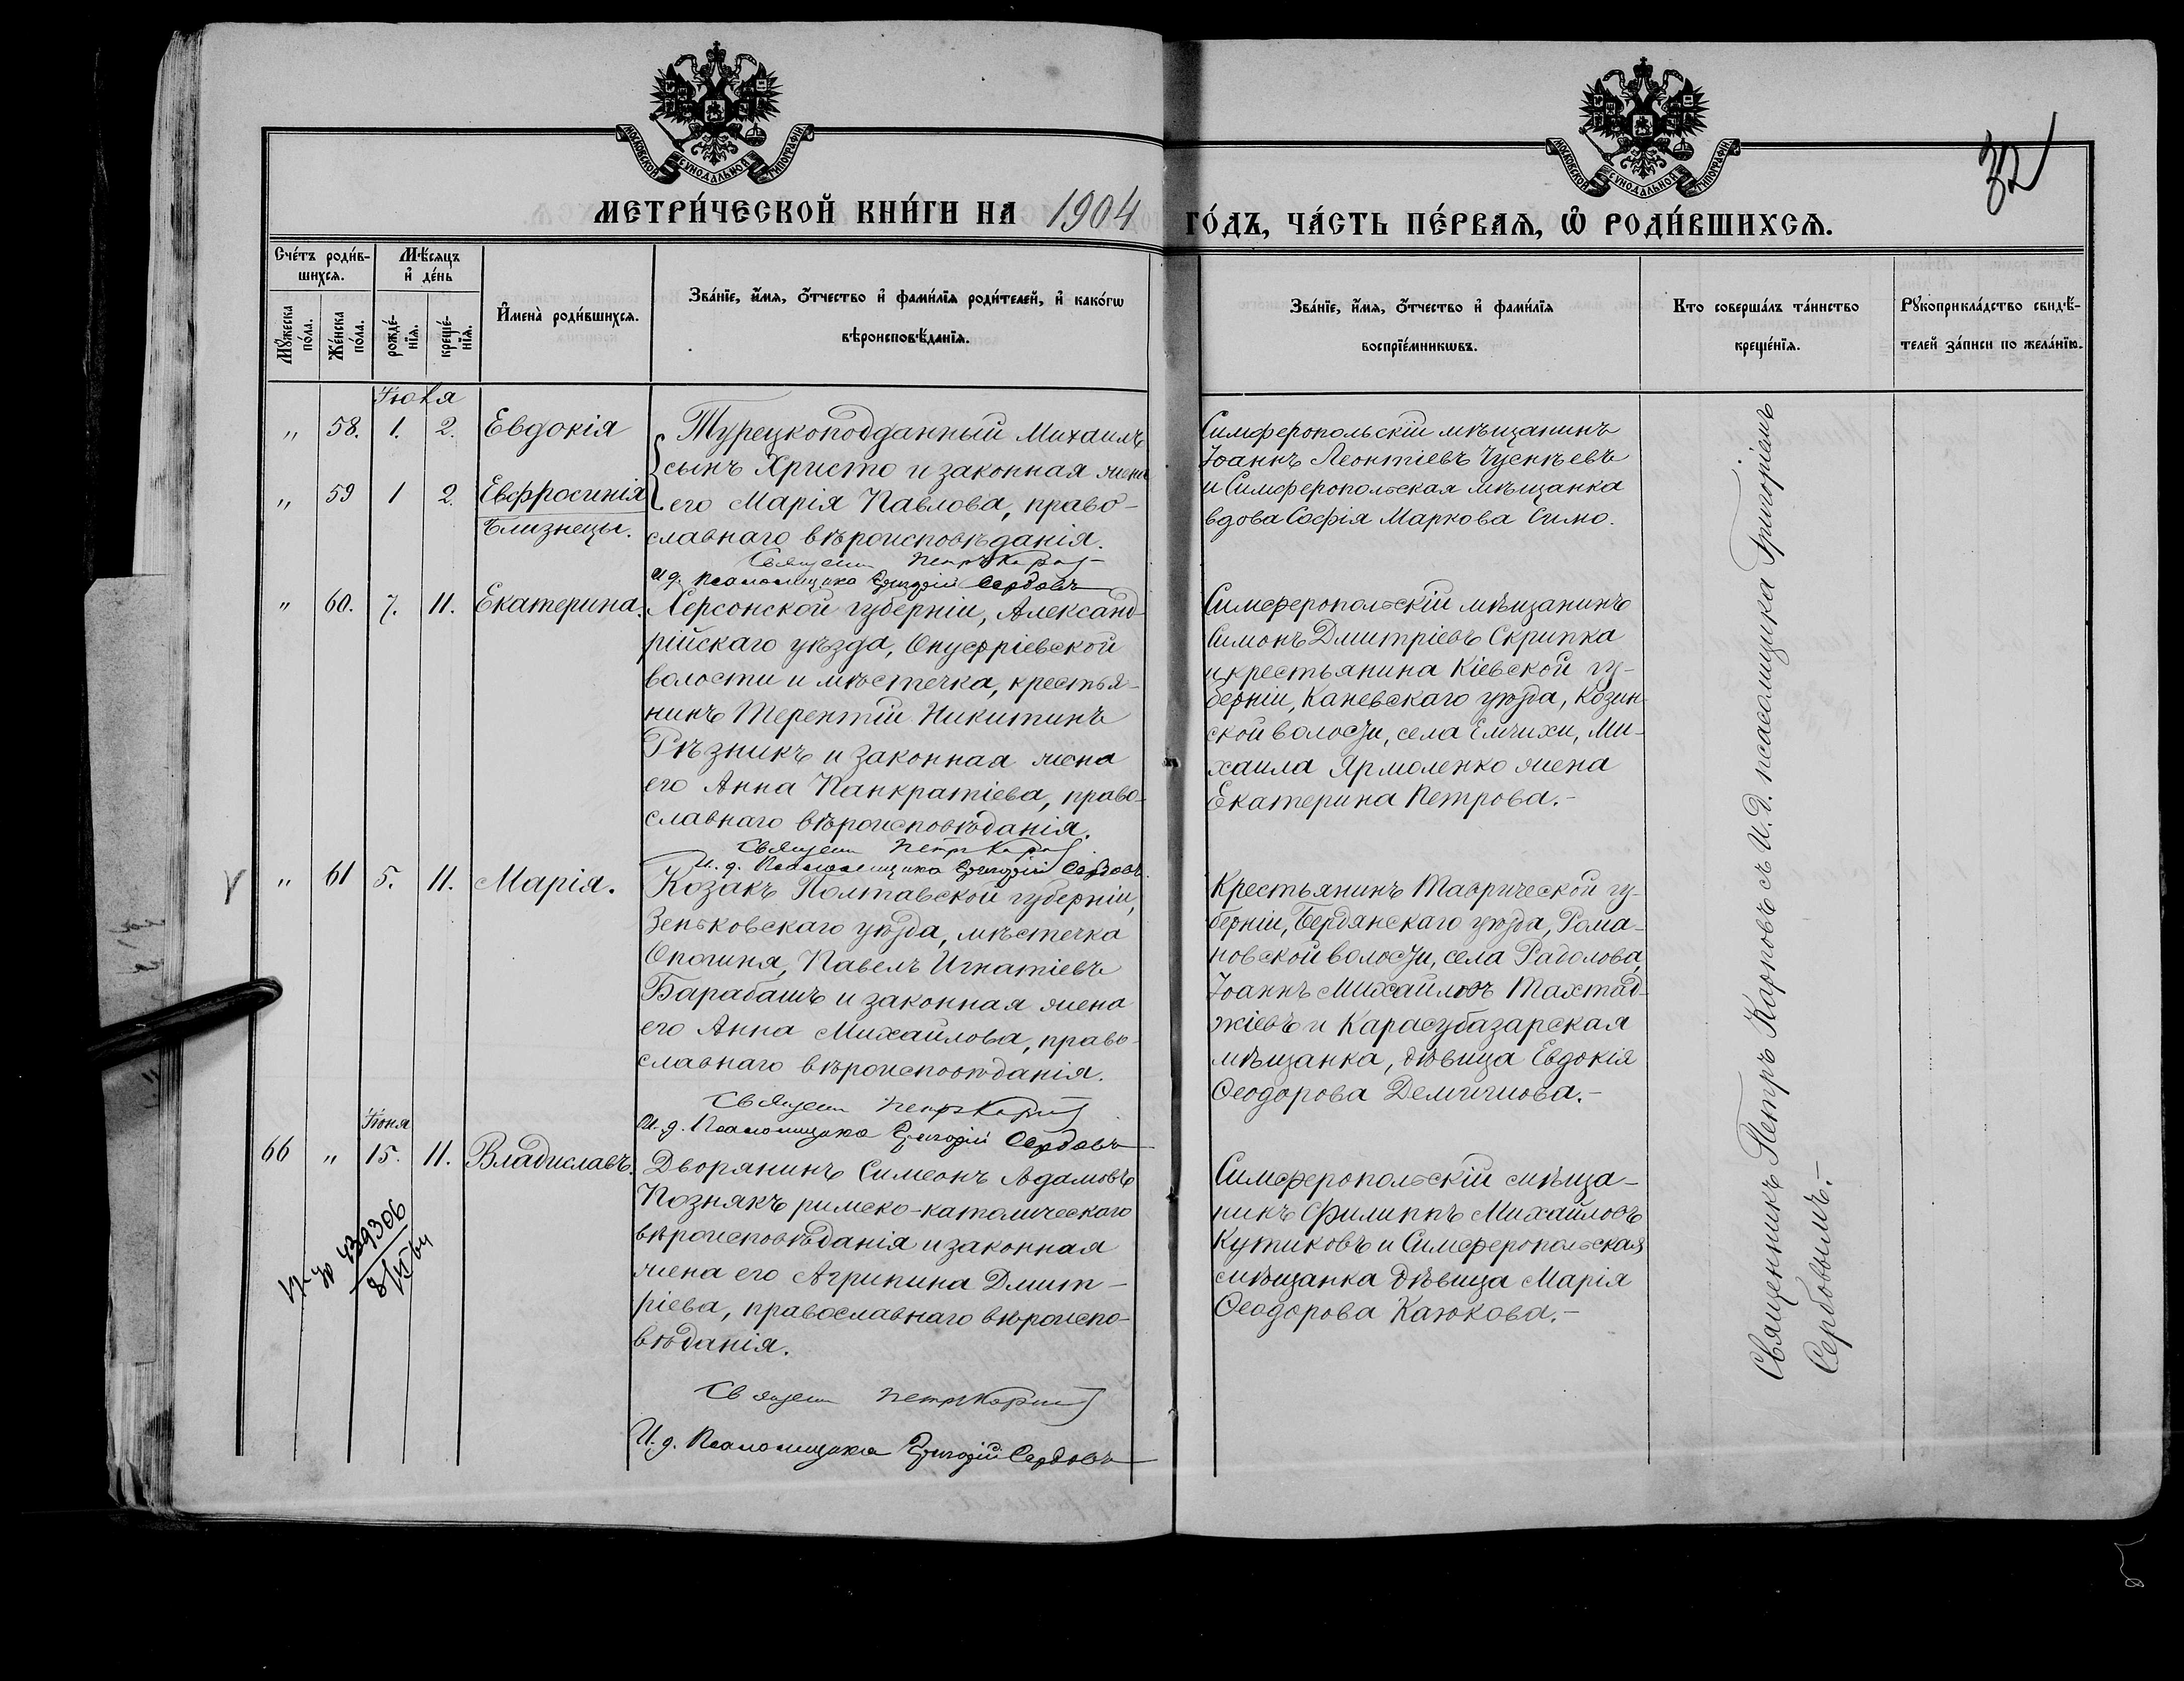 МОСКОВСКОЙ СУНОДАЛЬНОЙ ТИПОГРАФІИ
МОСКОВСКОЙ СУНОДАЛЬНОЙ ТИПОГРАФІИ
32
МЕТРИ́ЧЕСКОЙ КНИ́ГИ НА 1904 ГО́ДЪ, ЧА́СТЬ ПЕ́РВАѦ, Ѽ РОДИ́ВШИХСѦ.
Сче́тъ роди́в-
шихсѧ.
Мꙋ́жеска по́ла.
Же́нска по́ла.
Мѣ́сѧцъ и҆ де́нь
рожде́-нїѧ.
креще́-нїѧ.
И҆мена̀ роди́вшихсѧ.
Зва́нїе, и҆́мѧ, ѻ҆́тчество и҆ фами́лїѧ роди́телей, и҆ како́гѡ
вѣроисповѣ́данїѧ.
Зва́нїе, и҆́мѧ, ѻ҆́тчество и҆ фами́лїѧ
воспрїе́мникѡвъ.
Кто соверша́лъ та́инство
креще́нїѧ.
Рꙋкоприкла́дство свидѣ́-
телей за́писи по жела́нїю.
" 58. 1. 2. Евдокія
" 59 1 2. Евфросинія
Близнецы.
Турецкоподданный Михаилъ
сынъ Христо и законная жена
его Марія Павлова, право-
славнаго вѣроисповѣданія.
Священ Петръ Карп
И. д. Псаломщика Григорій Сербовъ
Симферопольскій мѣщанинъ
Іоаннъ Леонтіевъ
и Симферопольская мѣщанка
вдова Софія Маркова Симо.
" 60. 7. 11. Екатерина.
Херсонской губерніи, Александ-
рійскаго уѣзда, Онуфріевской
волости и мѣстечка, крестья-
нинъ Терентій Никитинъ
Рѣзникъ и законная жена
его Анна Панкратіева, право-
славнаго вѣроисповѣданія.
Священ Петръ Карп
И. д. Псаломщика Григорій Сербовъ
Симферопольскій мѣщанинъ
Симонъ Дмитріевъ Скрипка
и крестьянина Кіевской гу-
берніи, Каневскаго уѣзда, Козин-
ской волости, села Емчихи, Ми-
хаила Ярмоленко жена
Екатерина Петрова.-
V " 61 5. 11. Марія.
Козакъ Полтавской губерніи,
Зеньковскаго уѣзда, мѣстечка
Опошня, Павелъ Игнатіевъ
Барабашъ и законная жена
его Анна Михайлова, право-
славнаго вѣроисповѣданія.
Священ Петръ Карп
И. д. Псаломщика Григорій Сербовъ
Крестьянинъ Таврической гу-
берніи, Бердянскаго уѣзда, Рома-
новской волости, села
Іоаннъ Михайловъ Тахтад-
жіевъ и Карасубазарская
мѣщанка, дѣвица Евдокія
Ѳеодорова
Іюня
66 " 15. 11. Владиславъ.
439306
Дворянинъ Симеонъ Адамовъ
Познякъ римско-католическаго
вѣроисповѣданія и законная
жена его Агрипина Дмит-
ріева, православнаго вѣроиспо-
вѣданія.
Священ Петръ Карп
И. д. Псаломщика Григорій Сербовъ
Симферопольскій мѣща-
нинъ Филиппъ Михайловъ
Кутиковъ и Симферопольская
мѣщанка дѣвица Марія
Ѳеодорова Каюкова.-
Священникъ Петръ Карповъ съ И. д. псаломщика Григоріемъ
Сербовымъ.-